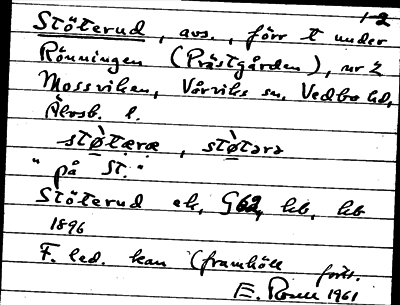 1-2
Stöterud, avs., förr t under
Rönningen (Prästgården), nr 2
Mossviken, Vårviks sn, Vedbo hd,
Älvsb. l.
stø̀tæræ, stø̀tərə
"på St."
Stöterud ek, G62, kb, kb
1896
F. led. kan (framhöll
forts.
E. Rosell 1961